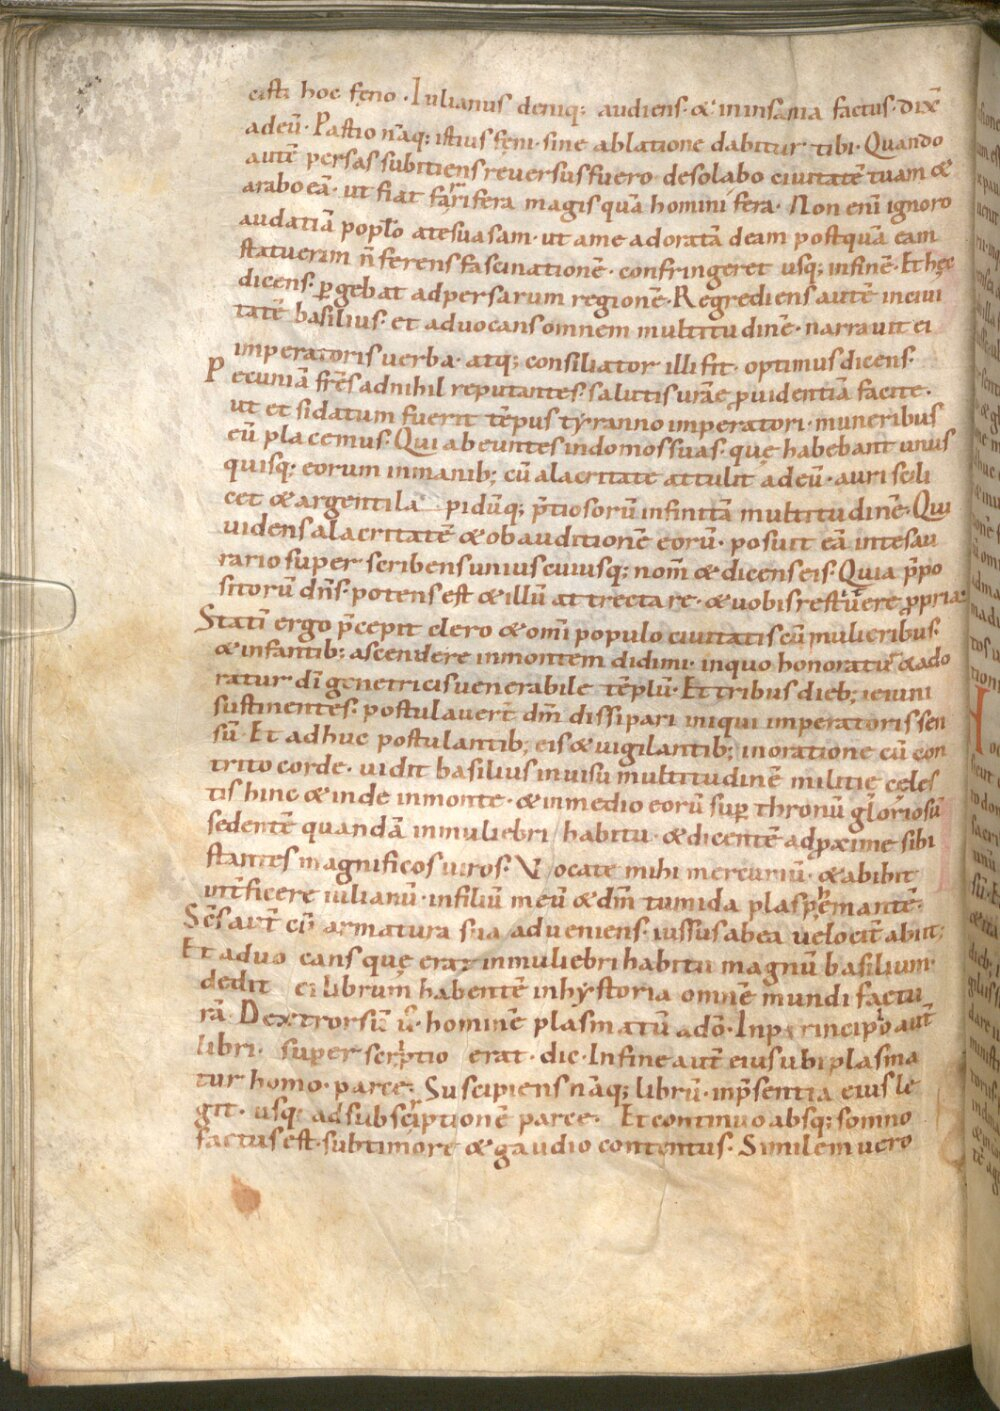 hoc feno · Iulianus deniq; audiens · & in insania factus · dix̄
adeū · Pastio nāq; istius feni · sine ablatione dabitur tibi · Quando
autē persas subitiens reversus fuero desolabo ciuitatē tuam &
arabo eā · ut fiat farrifera magis quā homini fera · Non enī ignoro
audatiā poplo atesuasam · ut ame adoratā deam postquā eam
statuerim n̄ ferens fascinationē · confringeret usq; infinē · Et hęc
dicens · ꝑgebat adpersarum regionē · Regrediens autē inciui
tatē basilius · et aduocans omnem multitudinē · narrauit ei
imperatoris uerba · atq; consiliator illi fit · optimus dicens ·
Pecuniā fr̄es adnihil reputantes · salutis ur̄ae ꝓuidentiā facite ·
ut et sidatum fuerit tēpus tẏranno imperatori · muneribus
eū placemus · Qui abeuntes indomos suas · que habebant unus
quisq; eorum inmanib; cū alacritate attulit adeū · auri scili
cet & argenti lapidūq; p̄tiosorū infinitā multitudinē · Qui
uidens alacritatē & obauditionē eorū · posuit eā intesau
rario super scribens uniuscuiusq; nom̄ & dicens eis · Quia p̄po
sitorū dn̄s · potens est & illū attrectare · & uobis restituere ꝓpria ·
Statī ergo p̄cepit clero & omī populo ciuitatis cū mulieribus ·
& infantib; ascendere inmontem didimi · inquo honoratur & ado
ratur dī genetricis uenerabile tēplū · Et tribus dieb; ieiuni
sustinentes · postulauerт̄ dm̄ dissipari iniqui imperatoris sen
sū · Et adhuc postulantib; eis & uigilantib; inoratione cū con
trito corde · uidit basilius inuisu multitudinē militię celes
tis hinc & inde inmonte · & inmedio eorū sup̄ thronū gloriosū
sedentē quandā inmuliebri habitu · & dicentē adproxime sibi
stantes magnificos uiros · Vocate mihi mercuriū · & abibit
int̄ficere iulianū · infiliū meū & dm̄ tumida blasphemantē ·
Sc̄s aut̄ cū armatura sua adueniens · iussus abea velocit̄ abiit ;
Et aduocans que erat inmuliebri habitu magnū basilium ·
dedit ei librum habentē inhẏstoria omnē mundi factu
rā · Dextrorsū u̅ · hominē plasmatū ado · Inprincipio aut̄
libri · superscriptio erat · dic · Infine aut̄ eius ubi plasma
tur homo · parce · Suscipiens nāq; librū · inp̄sentia eius le
git · usq; adsubscriptionē parce · Et continuo absq; somno
factus est · subtimore & gaudio contentus · Similem uero